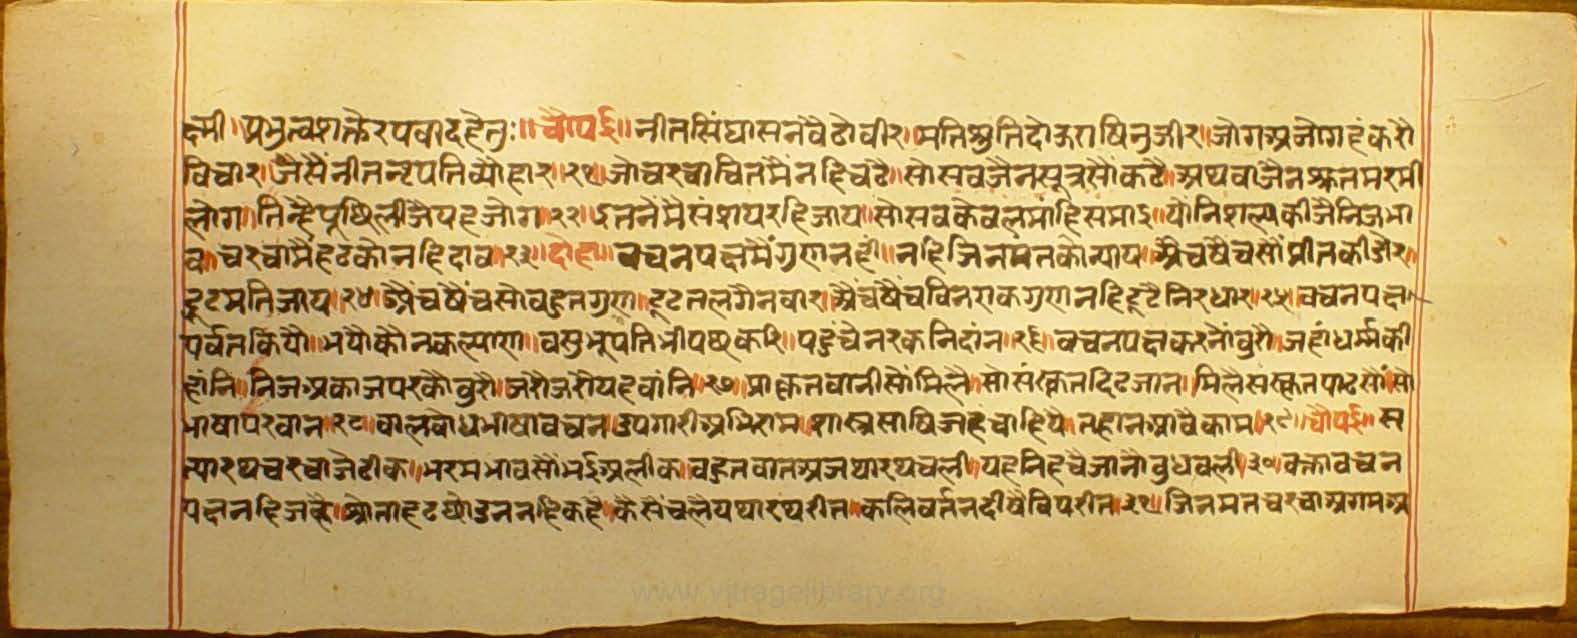 क्ष्मी॥प्रभुत्वशक्तेरपवादहेतुः॥चौपई॥नीतसिंघासनवैठोवीर॥मतिश्रुतिदोऊराषिनुजीर॥जोगअजोगहंकरौ
विचार॥जैसैंनीतनृपतिव्यौहार॥२१॥जोचरचाचितमैंनहिचढै॥सोसवजैनसूत्रसौंकढै॥अथवाजैनश्रुतमरमी
लोग॥तिन्हैपूछिलीजैयहजोग॥२२॥इतनेमैसंशयरहिजाय॥सोसवकेवलमांहिसमाइ॥यौनिशल्यकीजैनिजभा
व॥चरचामैंहठकौनहिदाव॥२३॥दोहा॥वचनपक्षमैंगुणनहीं॥नहिजिनमतकोन्याय॥अैचषैचसोंप्रीतकीडोर॥
टूटमतिजाय॥२४॥अैंचषैंचसोवहुतगुण॥टूटतलगैनवार॥अैंचषैंचविनराकगुणनहिटूटैनिरधार॥२५॥वचनपक्ष
पर्वतकियौ॥भयौकौनकल्याण॥वसुभूपतिभीपष्यकरि॥पहुंचेनरकनिदांन॥२६॥वचनपक्षकरनौंवुरौ॥जहांधर्म्मकी
हांनि॥निजअकाजपरकौवुरौ॥जरौजरौयहवांनि॥२७॥प्राकृतवानीसौंमिलै॥सोसंस्कृतदिढजान॥मिलैसंस्कृतपाठसौं॥सो
भाषापरवान॥२८॥वालवोधभाषावचन॥उपगारीअभिराम॥शास्त्रसाषिजहंचाहियै॥तहांनआवैकाम॥२९॥चौपई॥स
त्यारथचरचाजेठीक॥भरमभावसौंभईअलीक॥वहुतवातअजथारथचली॥यहनिहचैजानौवुधवली॥३०॥वक्तावचन
पक्षनहिजहै॥श्रोताहठग्योउननहिकहै॥कैसैंचलैयथारथरीत॥कलिवर्तनदीषैविपरीत॥३१॥जिनमतचरचाअगमअ
www.vitragelibrary.org